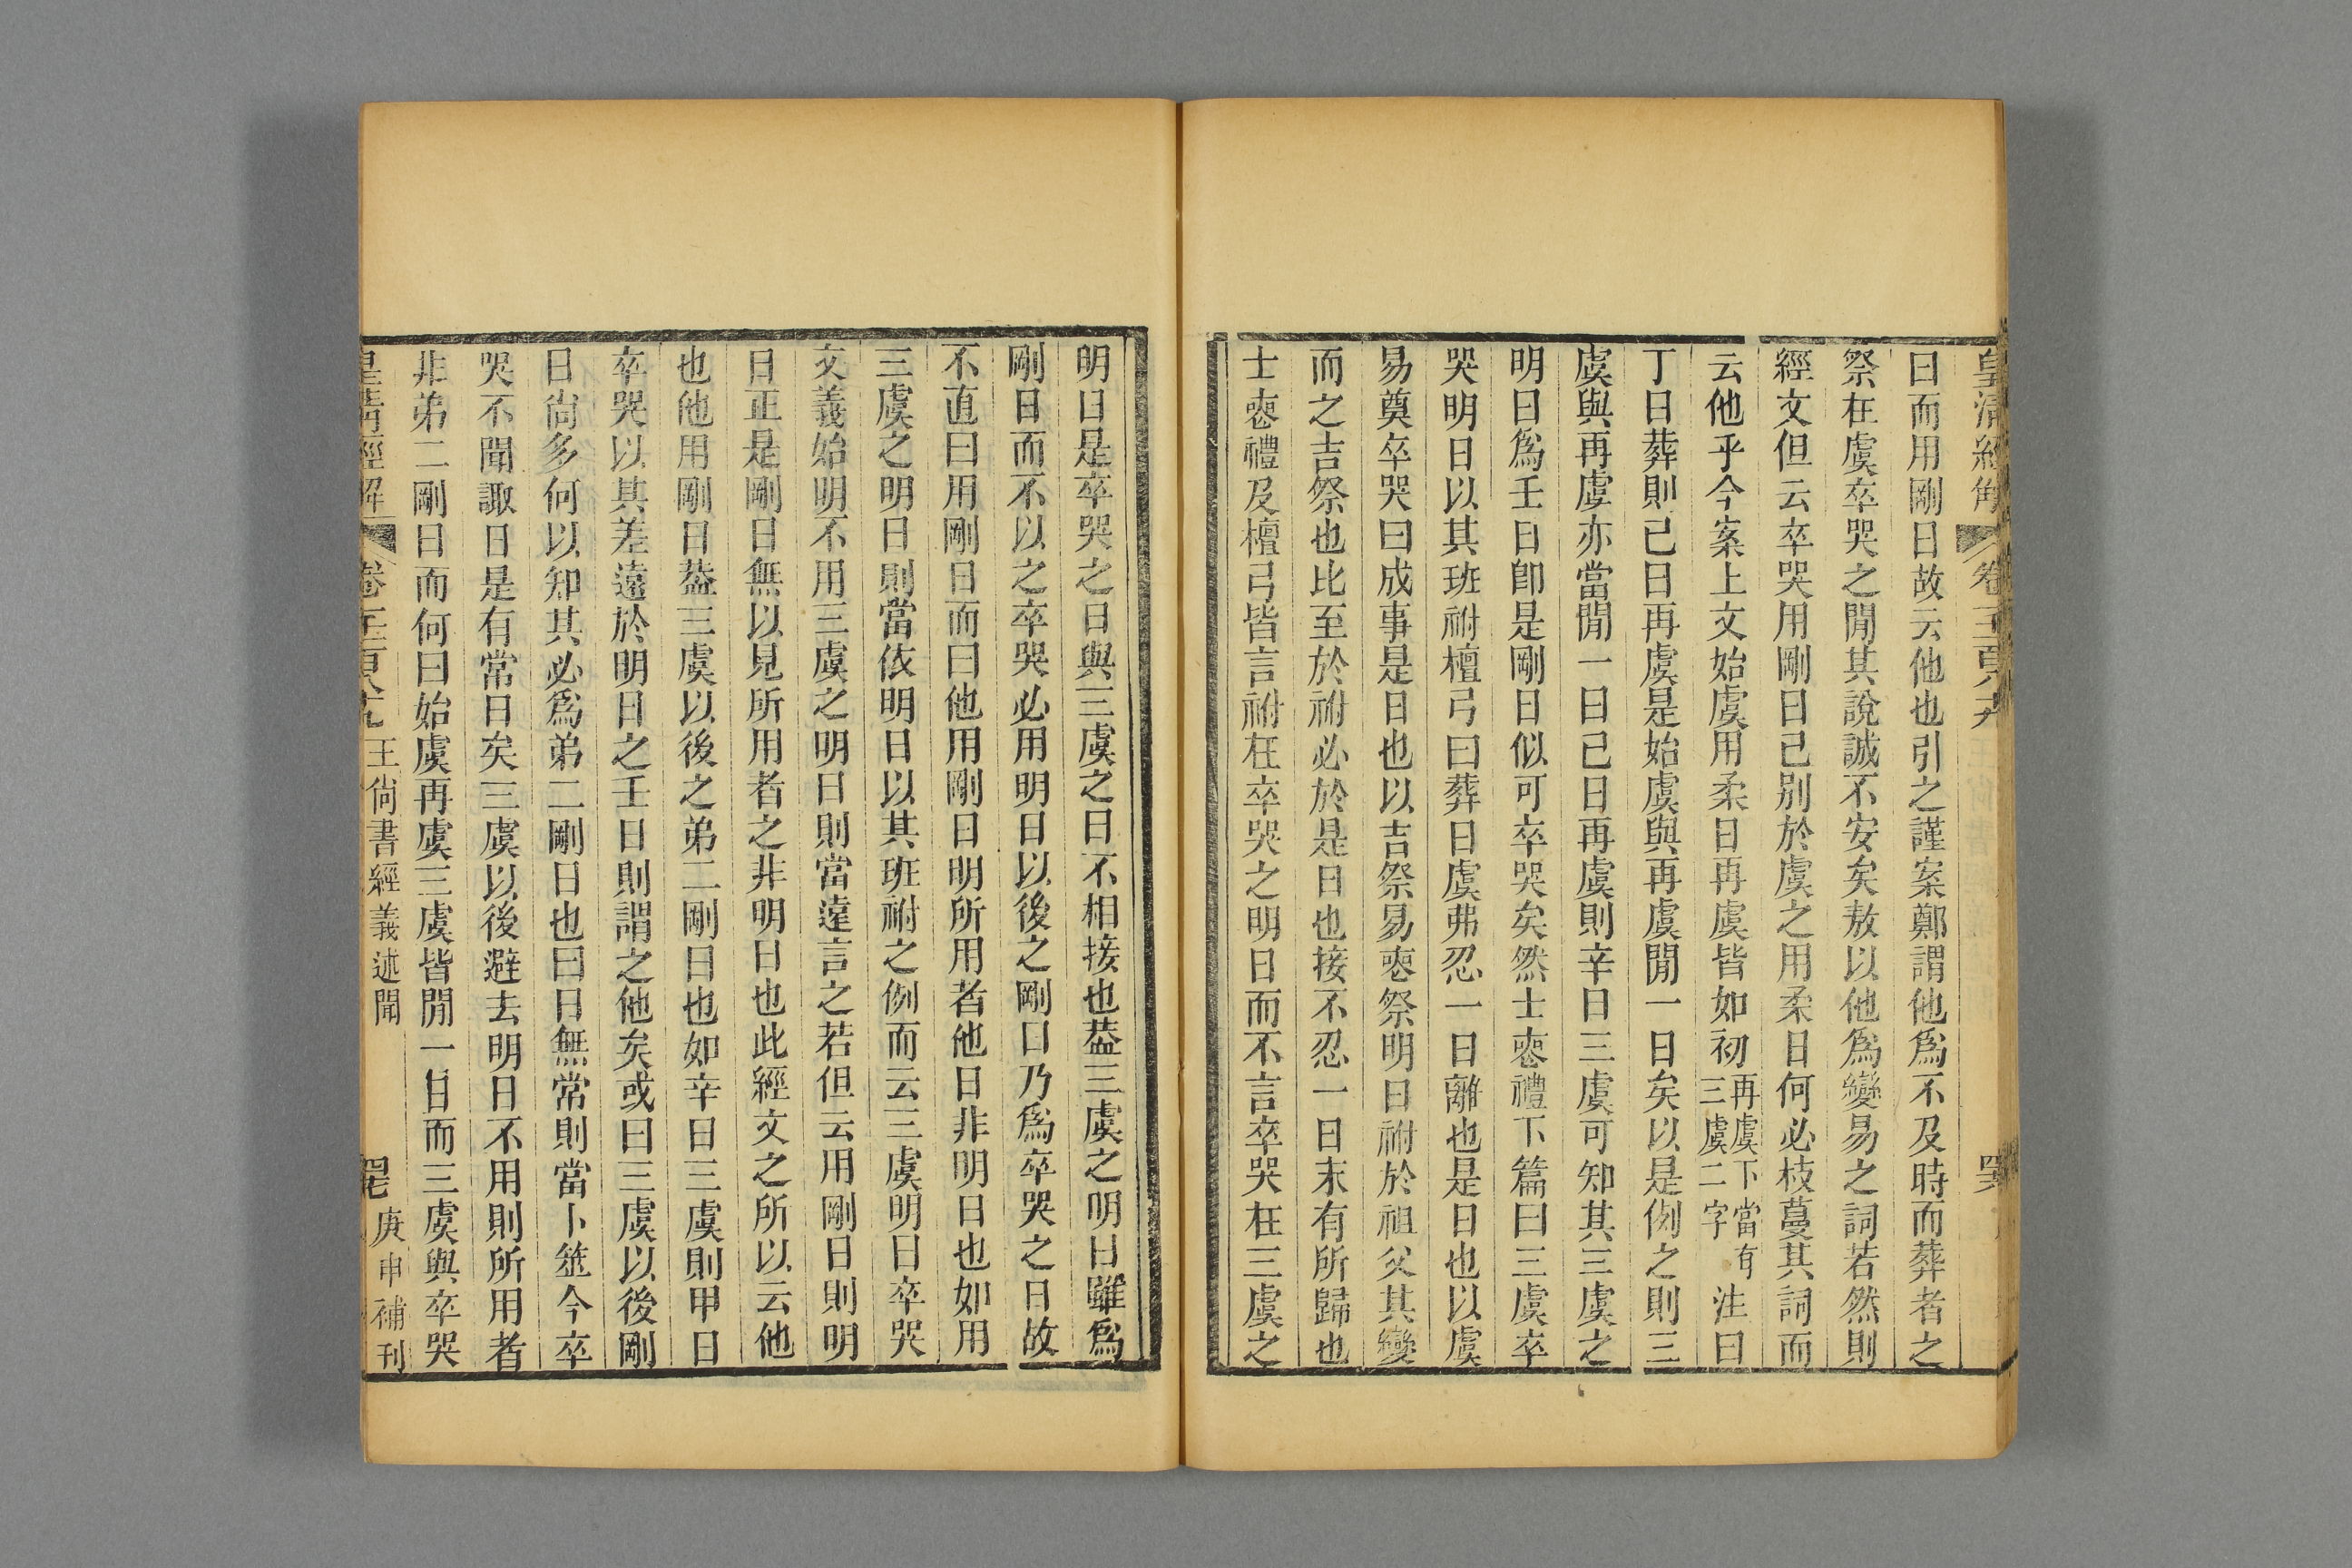 皇清經解 卷千一百八十九 罕六
日而用剛日故云他也引之謹案鄭謂他爲不及時而葬者之
祭在虞卒哭之閒其說誠不安矣敖以他爲變易之詞若然則
經文但云卒哭用剛日已別於虞之用柔日何必枝蔓其詞而
云他乎今案上文始虞用柔日再虞皆如初再虞下當有三虞二字注曰
丁日葬則己日再虞是始虞與再虞閒一日矣以是例之則三
虞與再虞亦當閒一日己日再虞則辛日三虞可知其三虞之
明日爲壬日卽是剛日似可卒哭矣然士喪禮下篇曰三虞卒
哭明日以其班祔檀弓曰葬日虞弗忍一日離也是日也以虞
易奠卒哭曰成事是日也以吉祭易喪祭明日祔於祖父其變
而之吉祭也比至於祔必於是日也接不忍一日末有所歸也
士喪禮及檀弓皆言祔在卒哭之明日而不言卒哭在三虞之
明日是卒哭之日與三虞之日不相接也葢三虞之明日雖爲
剛日而不以之卒哭必用明日以後之剛日乃爲卒哭之日故
不直曰用剛日而曰他用剛日明所用者他日非明日也如用
三虞之明日則當依明日以其班祔之例而云三虞明日卒哭
文義始明不用三虞之明日則當遠言之若但云用剛日則明
日正是剛日無以見所用者之非明日也此經文之所以云他
也他用剛日葢三虞以後之弟二剛日也如辛日三虞則甲日
卒哭以其差遠於明日之壬日則謂之他矣或曰三虞以後剛
日尚多何以知其必爲弟二剛日也曰日無常則當卜筮今卒
哭不聞諏日是有常日矣三虞以後避去明日不用則所用者
非弟二剛日而何曰始虞再虞三虞皆閒一日而三虞與卒哭
皇清經解 卷千一百八十九 王尙書經義述聞 罕七 庚申補刊